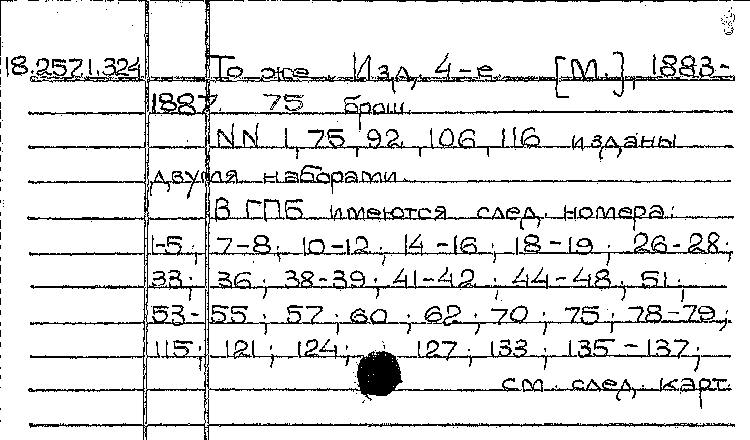 18.2571.324 То же. Изд. 4-е. [М.], 1883-
1887. 75 брош.
NN 1, 75, 92, 106, 116 изданы
двумя наборами.
В ГПБ имеются след. номера:
1-5; 7-8; 10-12; 14-16; 18-19; 26-28;
33; 36; 38-39; 41-42; 44-48; 51;
53-55; 57; 60; 62; 70; 75; 78-79;
115; 121; 124; 127; 133; 135-137;
см. след. карт.